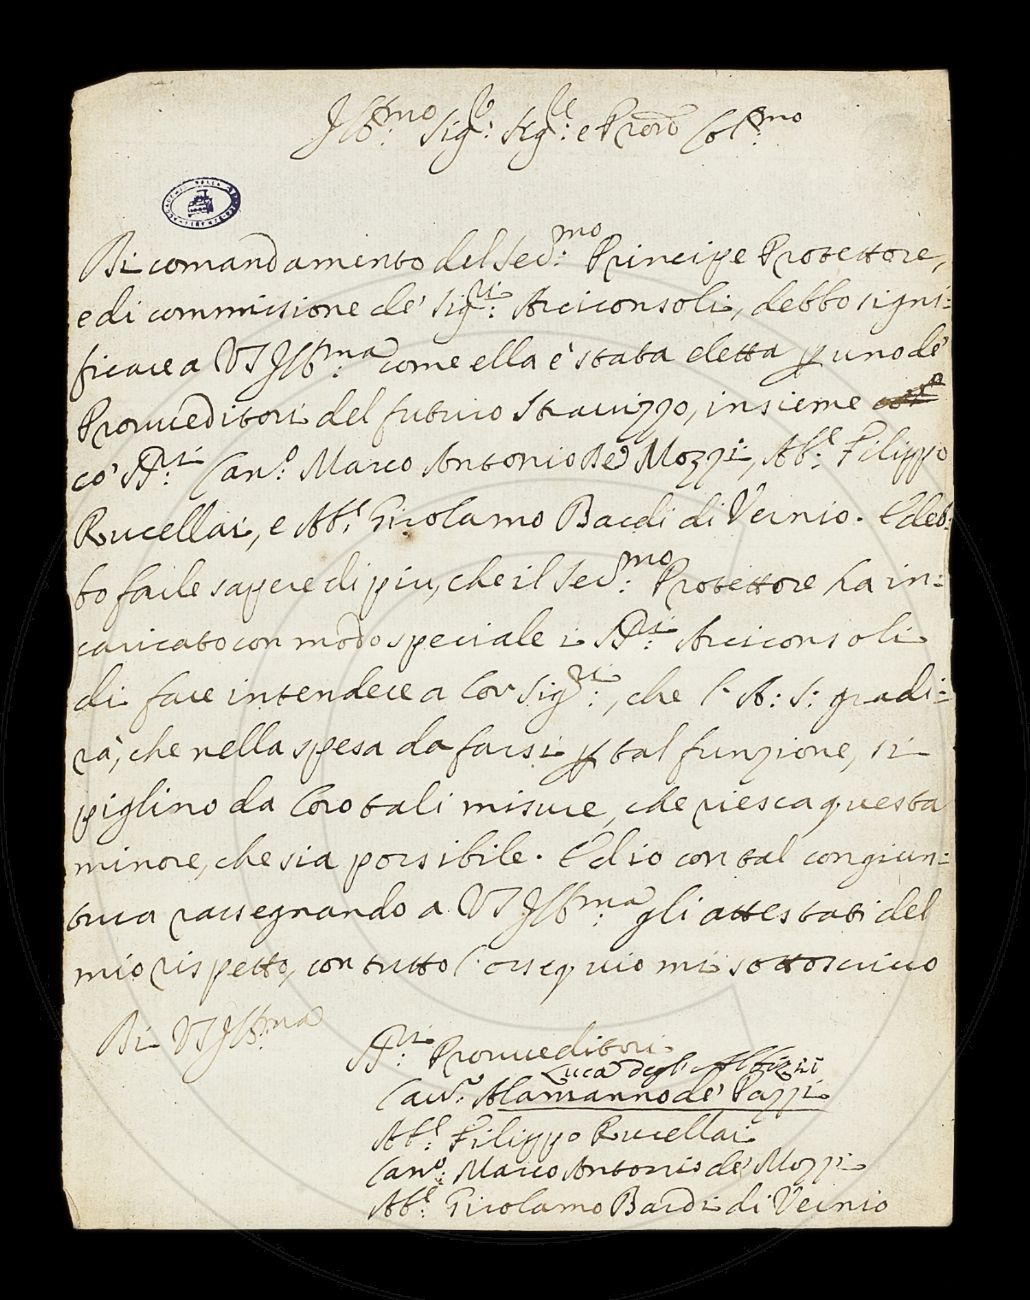 Ill:mo Sig:r Sig:re e Pron Col:mo
Di comandamento del Ser:mo Principe Protettore,
e di commissione de' Sig:ri Arciconsoli, debbo signi=
ficare a VS Ill:ma come ella è stata eletta p uno de'
Provveditori del futuro Stravizzo, insieme
co' SS:ri Can:o Marco Antonio de' Mozzi, Ab:e Filippo
Rucellai, e Ab:e Girolamo Bardi di Vernio. E deb=
bo farle sapere di piu, che il Ser:mo Protettore ha in=
caricato con modo speciale i SS:ri Arciconsoli
di fare intendere a lor Sig:ri, che l'A: S: gradi=
rà, che nella spesa da farsi p tal funzione, si
piglino da loro tali misure, che riesca questa
minore, che sia possibile. Ed io con tal congiun=
tura rassegnando a VS Ill:ma gli attestati del
mio rispetto, con tutto l'ossequio mi sottoscrivo
Di VS Ill:ma
SS:ri Provveditori
Luca degl'Albizzi
Cav:r Alamanno de' Pazzi
Ab:e Filippo Rucellai
Can:o Marco Antonio de' Mozzi
Ab:e Girolamo Bardi di Vernio